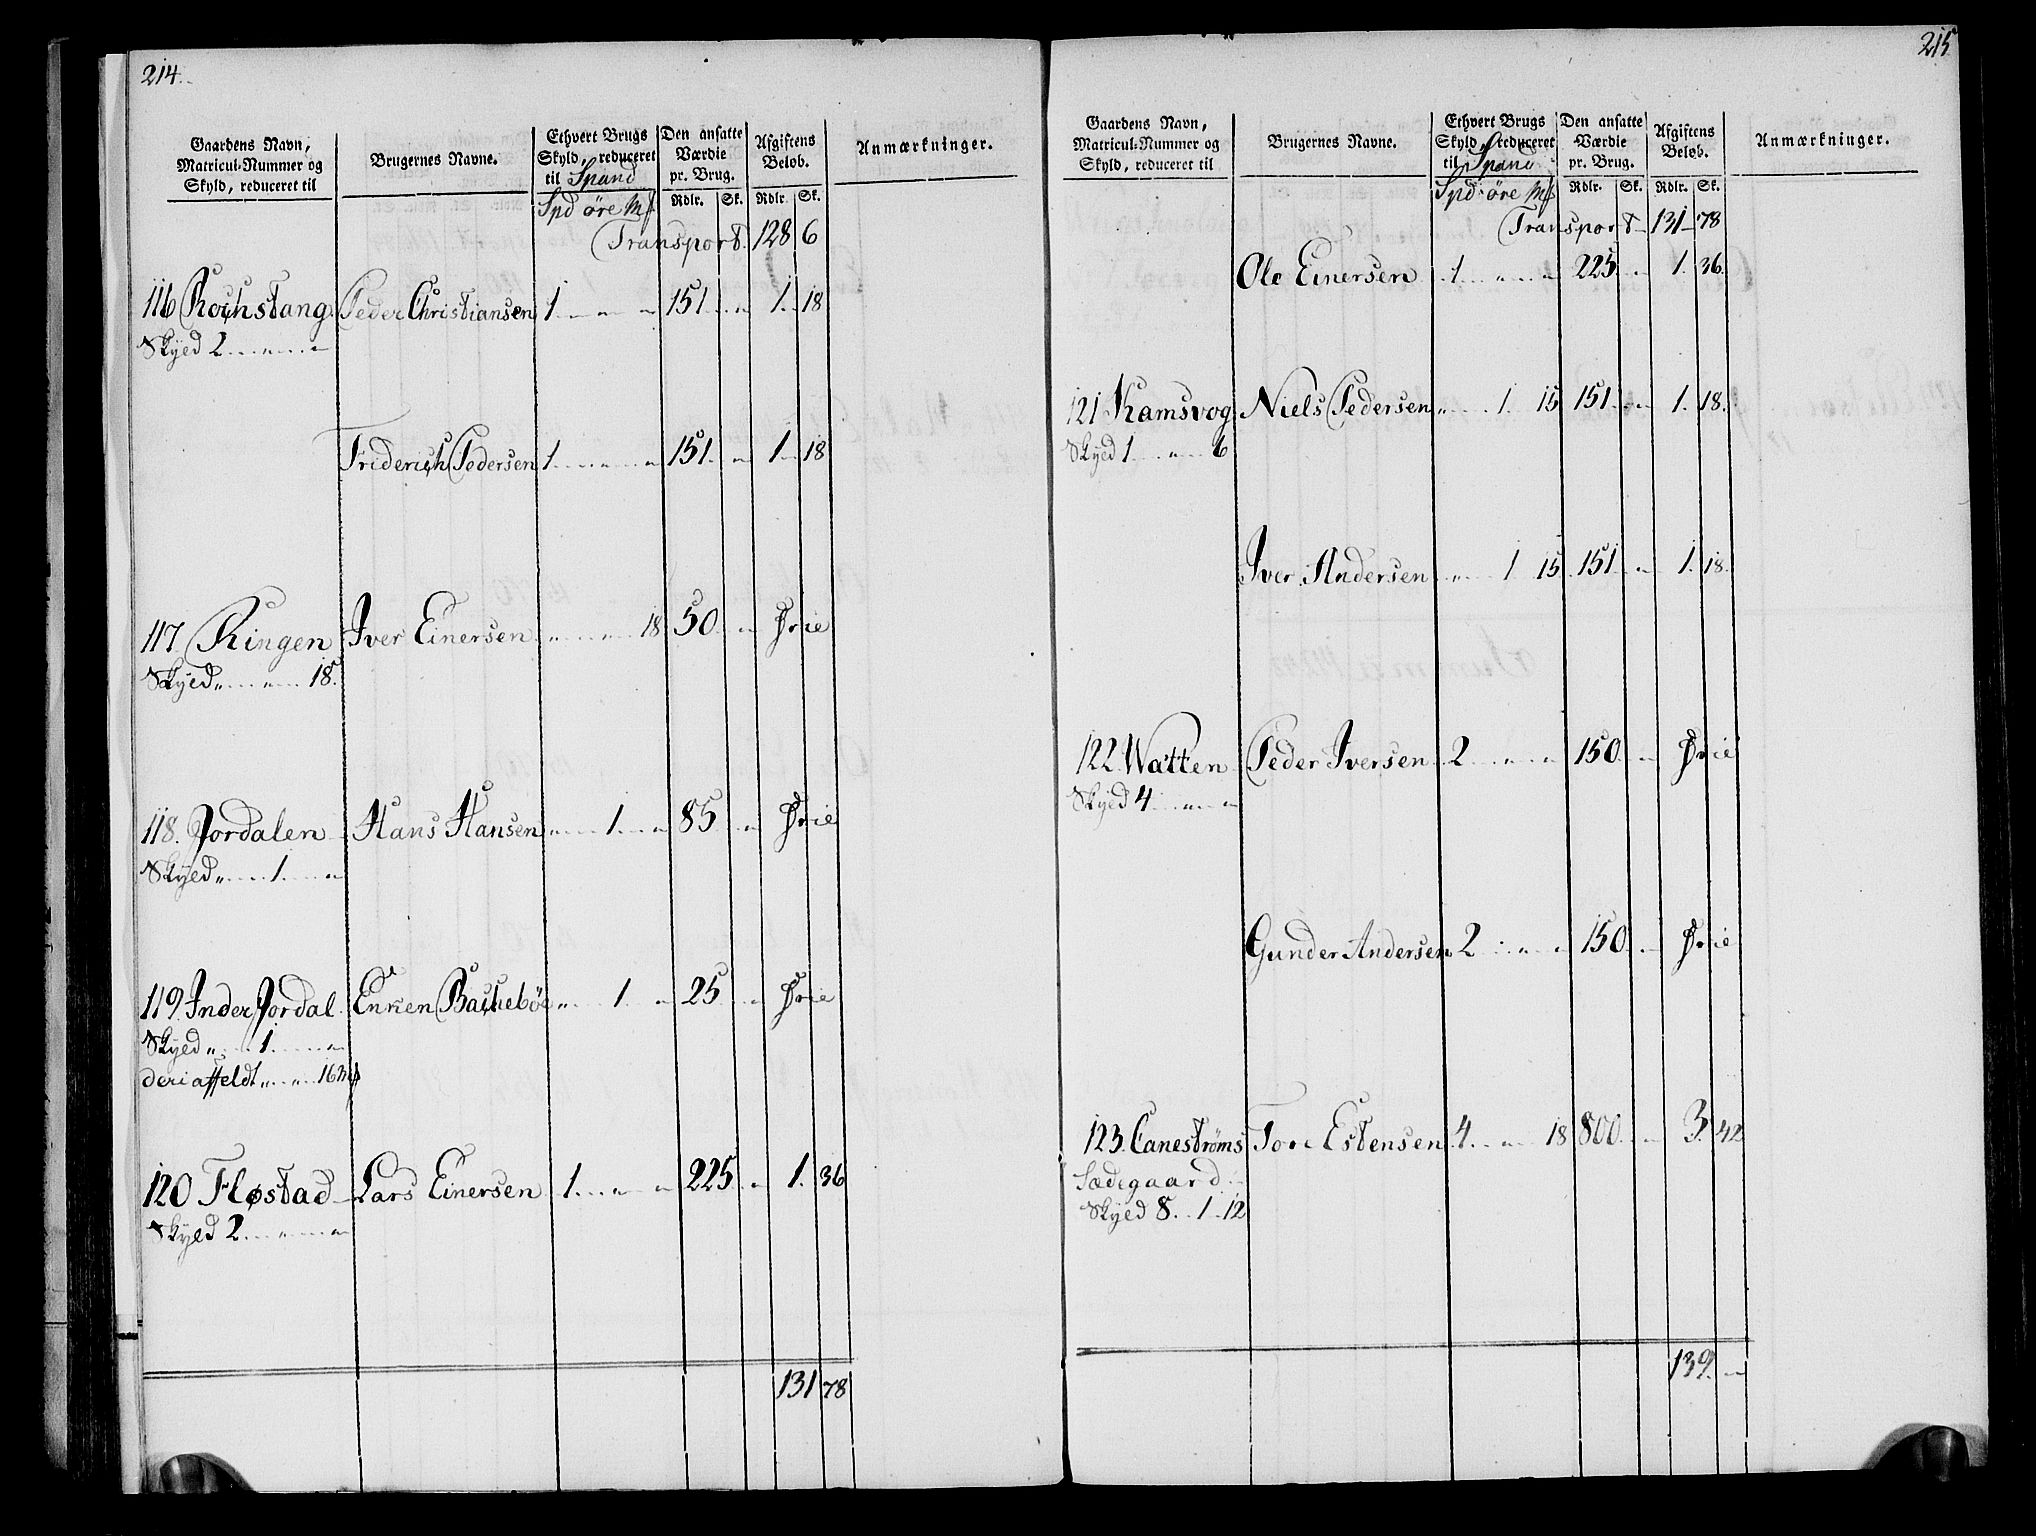 214.
Gaardens Navn, Matricul-Nummer og Skyld, reduceret til
Brugernes Navne.
Ethvert Brugs Skyld, reduceret til Spand
Den ansatte Værdie pr. Brug.
Afgiftens Beløb.
Anmærkninger.
Spd øre mf Rdlr. Sk. Rdlr. Sk.
Transport. 128 6
116 Rochstang Peder Christiansen 1 " " 151 " 1 18
Skyed 2 " "
Friderich Pedersen 1 " " 151 " 1 18
117 Ringen Iver Einersen " " 18 50 " Frie
Skyed " " 18
118. Jordalen Hans Hansen " 1 " 85 " Frie
Skyed " 1 "
119. Inder Jordal Enken Bachebøe " 1 " 25 " Frie
Skyed " 1 "
deriaffeldt " " 16 mf
120 Fløstad Lars Einersen 1 " " 225 " 1. 36
Skyed 2 " "
131 78
215
Gaardens Navn, Matricul-Nummer og Skyld, reduceret til
Brugernes Navne.
Ethvert Brugs Skyld, reduceret til Spand
Den ansatte Værdie pr. Brug.
Afgiftens Beløb.
Anmærkninger.
Spd: øre mf Rdlr. Sk. Rdlr. Sk.
Transport 131 78
Ole Einersen 1 " " 225 " 1. 36.
121 Ramsvog Niels Pedersen " 1 15 151 " 1. 18.
Skyed 1 " 6
Iver Andersen " 1 15 151 " 1. 18.
122 Watten Peder Iversen 2 " " 150 " Frie
Skyed 4 " "
Gunder Andersen 2 " " 150 " Frie
123. Canestrøms Tore Estensen 4 " 18 800 " 3. 42
Sædegaard
Skyed 8. 1 12
139. "